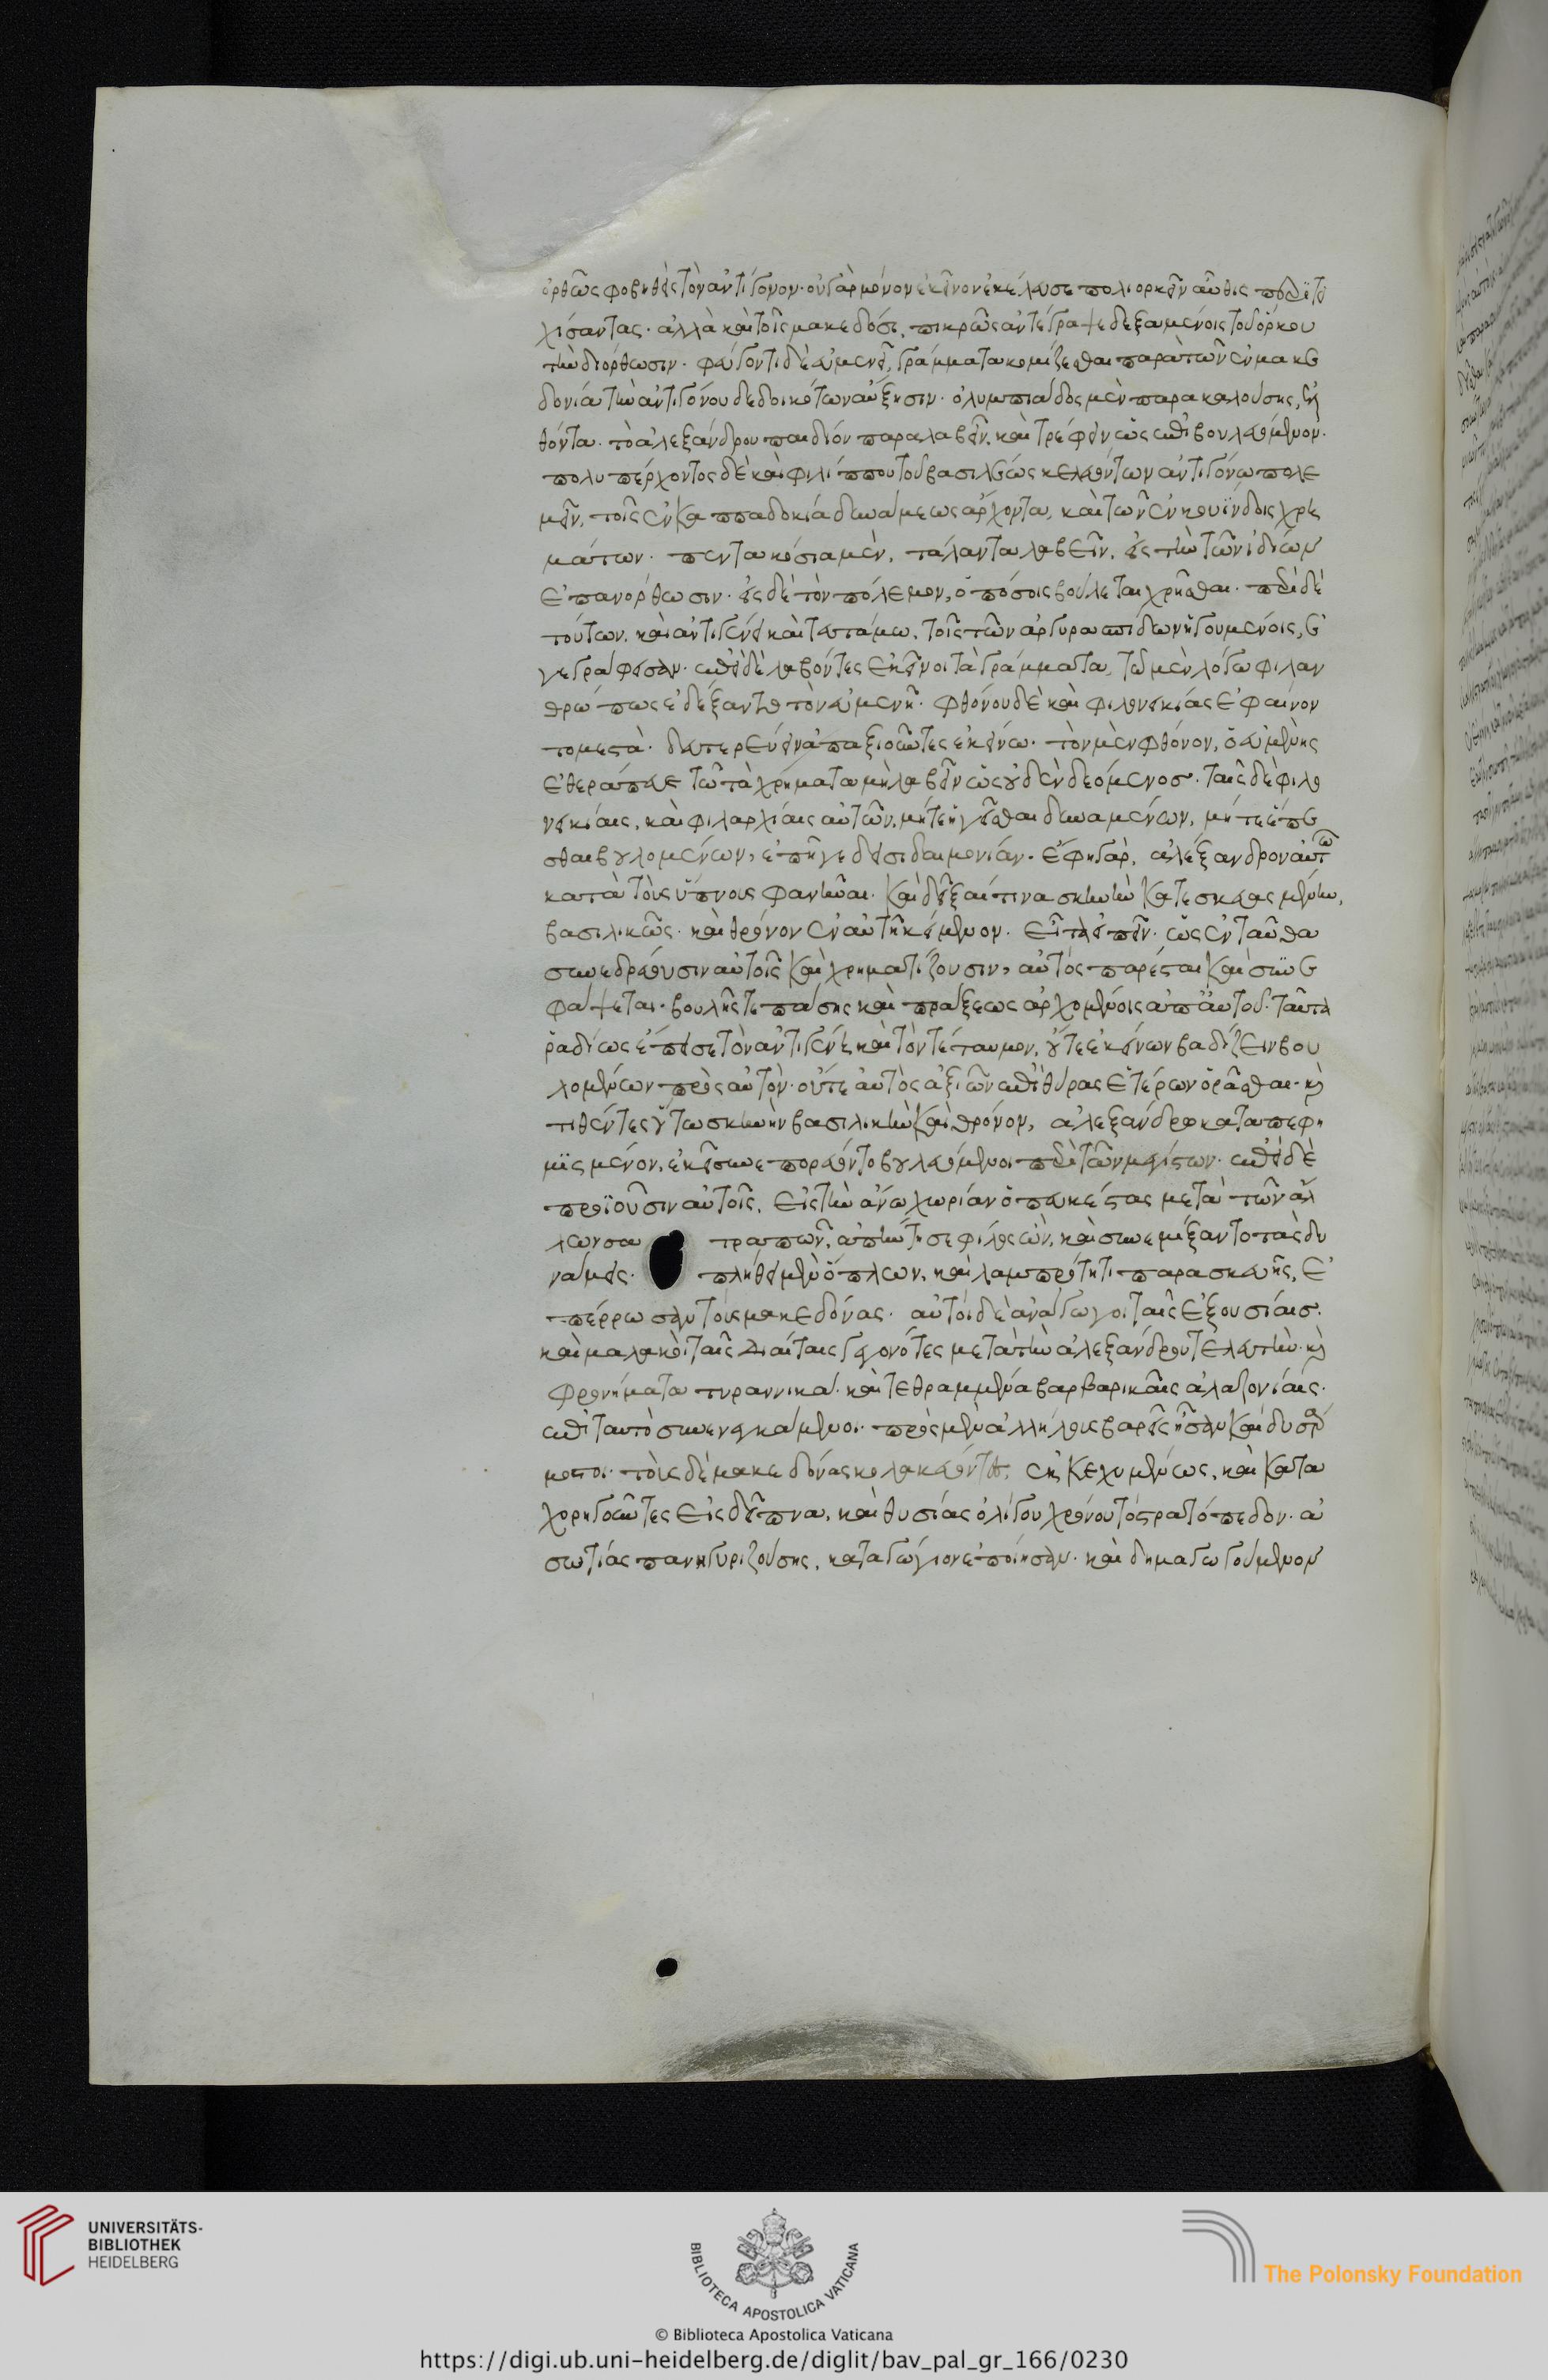 ὀρθῶς φοβηθεὶς τὸν ἀντίγονον· οὐ γὰρ μόνον ἐκεῖνον ἐκέλευσε πολιορκεῖν αὖθις περιτει
χίσαντας· ἀλλὰ καὶ τοῖς μακεδόσι, πικρῶς ἀντέγραψε δεξαμένοις τοῦ ὅρκου
τὴν διόρθωσιν· φεύγοντι δὲ εὐμενεῖ, γράμματα κομίζεσθαι παρὰ τῶν ἐν μακε
δονία τὴν ἀντιγόνου δεδοικότων αὔξησιν· ὀλυμπιάδος μὲν παρακαλούσης, ἐλ
θόντα· τὸ ἀλεξάνδρου παιδίον παραλαβεῖν, καὶ τρέφειν ὡς ἐπιβουλευόμενον·
πολυπέρχοντος δὲ καὶ φιλίππου τοῦ βασιλέως κελευόντων ἀντιγόνω πολε
μεῖν, τοῖς ἐν καππαδοκία δυνάμεως ἄρχοντα, καὶ τῶν ἐν κουΐνδοις χρη
μάτων· πεντακόσια μὲν, τάλαντα λαβεῖν, εἰς τὴν τῶν ἰδίων
ἐπανόρθωσιν· εἰς δὲ τὸν πόλεμον, ὁπόσοις βούλεται χρῆσθαι· περὶ δὲ
τούτων, καὶ ἀντιγένει καὶ τευτάμω, τοῖς τῶν ἀργυρασπίδων ἡγουμένοις, ἐ
γεγράφεσαν· ἐπεὶ δὲ λαβόντες ἐκεῖνοι τὰ γράμματα, τῶ μὲν λόγω φιλαν
θρώπως ἐδέξαντο τὸν εὐμενῆ· φθόνου δὲ καὶ φιλονεικίας ἐφαίνον
το μεστὰ· δευτερεύειν ἀπαξιοῦντες ἐκείνω· τὸν μὲν φθόνον, ὁ εὐμένης
ἐθεράπευε τῶ τὰ χρήματα μὴ λαβεῖν ὡς οὐδὲν δεόμενος· ταῖς δὲ φιλο
νεικίαις, καὶ φιλαρχίαις αὐτῶν, μήτε ἡγεῖσθαι δυναμένων, μήτε ἕπε
σθαι βουλομένων, ἐπῆγε δεισιδαιμονίαν· ἔφη γὰρ, ἀλέξανδρον αὐτῶ
κατὰ τοὺς ὕπνους φανῆναι· καὶ δεῖξαί τινα σκηνὴν κατεσκευασμένην,
βασιλικῶς· καὶ θρόνον ἐν αὐτῇ κείμενον· εἶτα εἰπεῖν· ὡς ἐνταῦθα
συνεδρεύουσιν αὐτοῖς καὶ χρηματίζουσιν, αὐτὸς παρέσται καὶ συνε
φάψεται· βουλῆς τε πάσης καὶ πράξεως ἀρχομένοις ἀπ' αὐτοῦ· ταῦτα
ῥαδίως ἔπεισε τὸν ἀντιγένη καὶ τὸν τεύταμον, οὔτε ἐκείνων βαδίζειν βου
λομένων πρὸς αὐτὸν· οὔτε αὐτὸς ἀξιῶν ἐπὶ θύρας ἑτέρων ὁρᾶσθαι· καὶ
τιθέντες οὕτω σκηνὴν βασιλικὴν καὶ θρόνον, ἀλεξάνδρω καταπεφη
μισμένον, ἐκεῖ συνεπορεύοντο βουλευόμενοι περὶ τῶν μεγίστων· ἐπεὶ δὲ
προϊοῦσιν αὐτοῖς, εἰς τὴν ἄνω χωρίαν ὁ πευκέστας μετὰ τῶν ἄλ
λων σα τραπῶν, ἀπήντησε φίλος ὢν, καὶ συνεμίξαντο τὰς δυ
νάμεις· πλήθει μὲν ὅπλων, καὶ λαμπρότητι παρασκευῆς, ἐ
πέρρωσαν τοὺς μακεδόνας· αὐτοὶ δὲ ἀνάγωγοι ταῖς ἐξουσίαις·
καὶ μαλακοὶ ταῖς διαίταις γεγονότες μετὰ τὴν ἀλεξάνδρου τελευτὴν· καὶ
φρονήματα τυραννικὰ· καὶ τεθραμμένα βαρβαρικαῖς ἀλαζονίαις·
ἐπὶ ταυτὸ συνενεγκάμενοι· πρὸς μὲν ἀλλήλους βαρεῖς ἦσαν καὶ δυσάρ
μοστοι· τοὺς δὲ μακεδόνας κολακεύοντες, ἐκκεχυμένως, καὶ κατα
χορηγοῦντες εἰς δεῖπνα, καὶ θυσίας ὀλίγου χρόνου τὸ στρατόπεδον· ἀ
σωτίας πανηγυριζούσης, καταγώγιον ἐποίησαν· καὶ δημαγωγούμενον
UNIVERSITÄTS-
BIBLIOTHEK
HEIDELBERG
BIBLIOTECA APOSTOLICA VATICANA
The Polonsky Foundation
© Biblioteca Apostolica Vaticana
https://digi.ub.uni-heidelberg.de/diglit/bav_pal_gr_166/0230